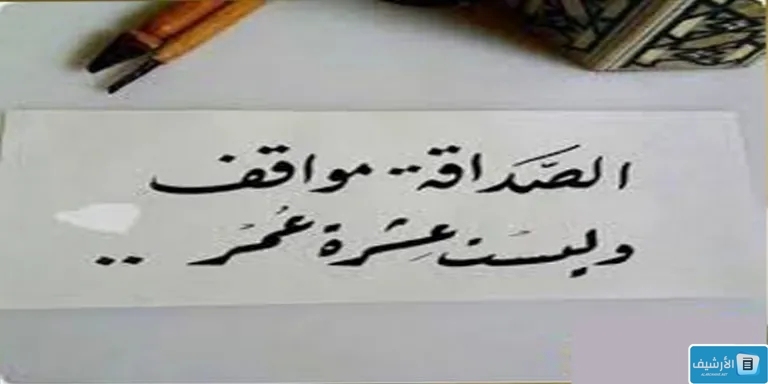 الصَّدَاقة .. مواقف
وليسَت عِشرة عُمُر ..
الأرشيف